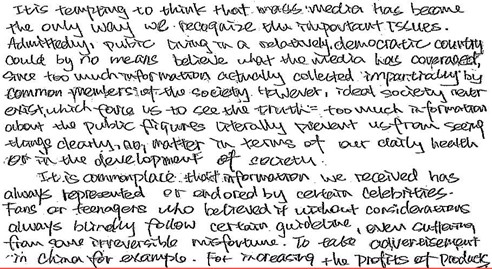 It is tempting to think that mass media has become
the only way we recognize the important issues.
Admittedly, public living in a relatively democratic country
could by no means believe what the media has coveraged,
since too much information actually collected impartially by
common members of the society. However, ideal society never
exist, which force us to see the truth: too much information
about the public figures literally prevent us from seeing
things clearly, no matter in terms of our daily health
or in the development of society.
It is commonplace that information we received has
always represented or endored by certain celebrities.
Fans or teenagers who believed it without considerations
always blindly follow certain guideline, even suffering
from some irreversible misfortune. To take adverseisement
in China for example. For increasing the profits of products